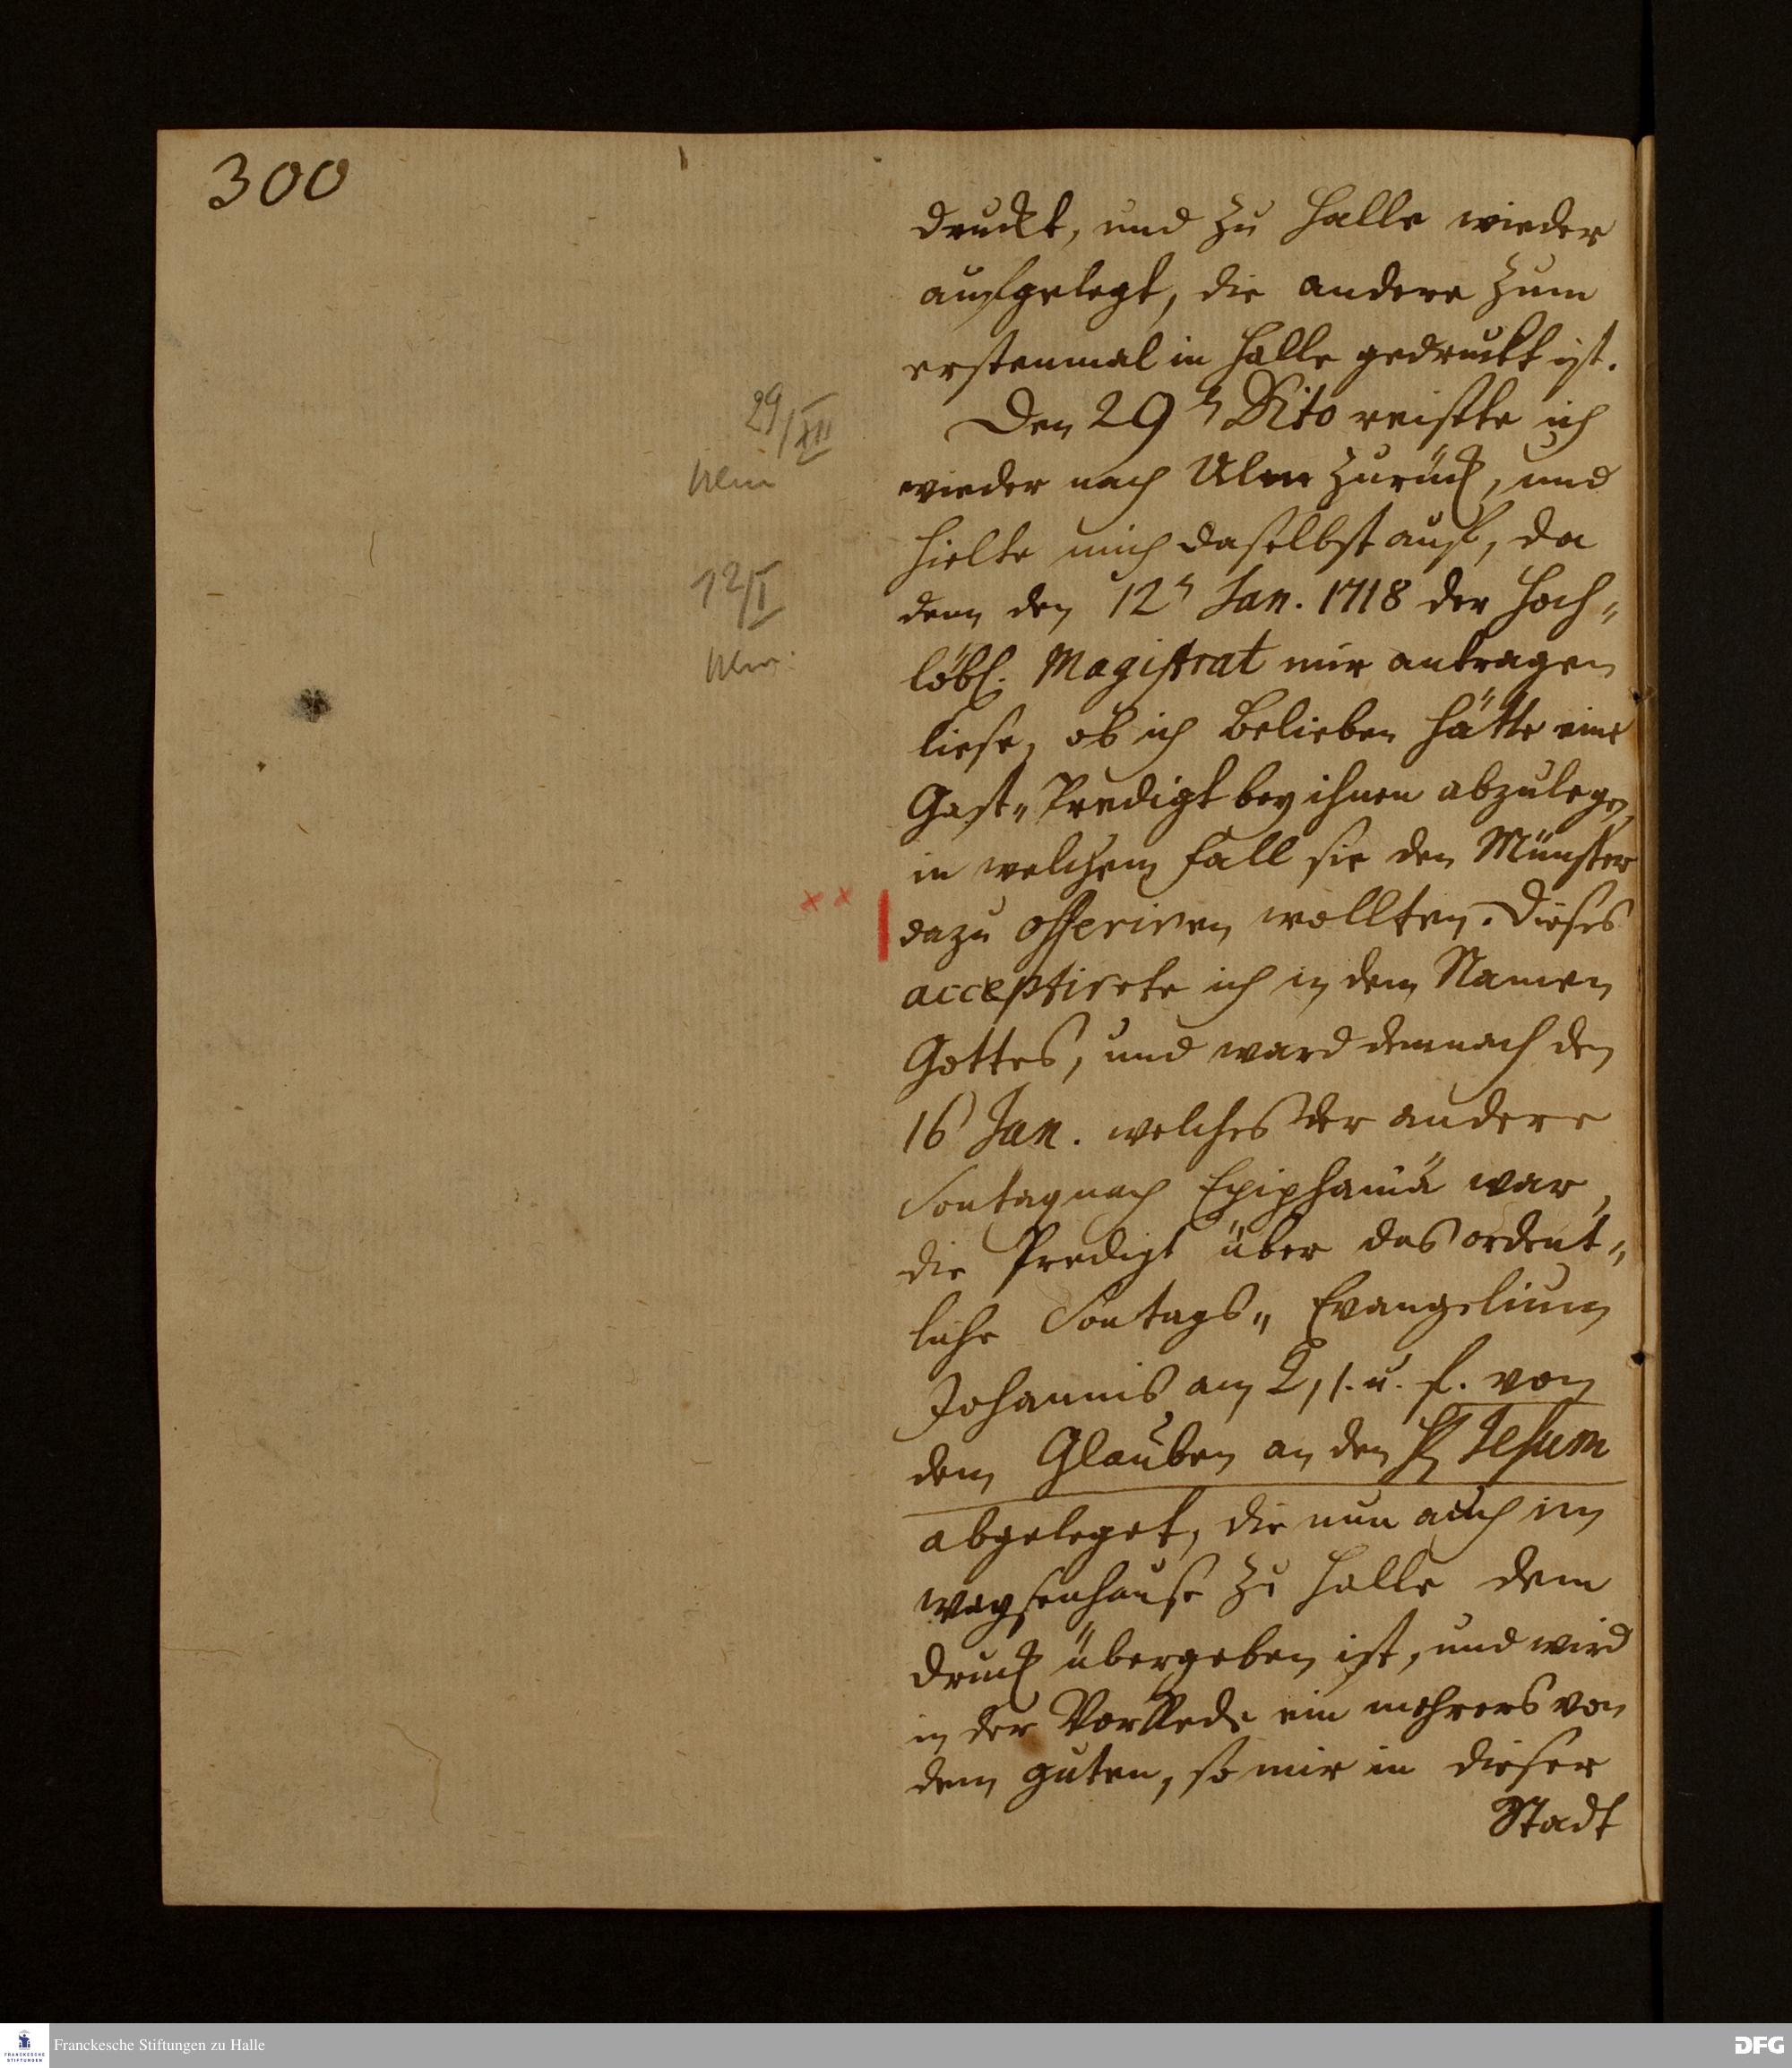 300
druckt, und zu Halle wieder
aufgelegt, die andere zum
erstenmal in Halle gedruckt ist.
29/XII
Den 29ⁿ Dito reißte ich
Ulm
wieder nach Ulm zurück, und
hielte mich daselbst auf, da
12/I
denn den 12ⁿ Jan. 1718 der Hoch„
Ulm.
löbl. Magistrat mir antragen
liese, ob ich Belieben hätte eine
Gast„Predigt bey ihnen abzulegen,
in welchem Fall sie den Münster
dazu offeriren wollten. Dieses
acceptirte ich in dem Namen
Gottes, und ward demnach den
16 Jan. welches der andere
Sontag nach Epiphaniä war,
die Predigt über das ordent„
liche Sontags„ Evangelium
Johannis am 2, 1. u. f. von
dem Glauben an den H Jesum
abgeleget, die nun auch im
Waysenhause zu Halle dem
Druck übergeben ist, und wird
in der VorRede ein mehrers von
dem guten, so mir in dieser
Stadt
Franckesche Stiftungen zu Halle
FRANCKESCHE STIFTUNGEN
DFG